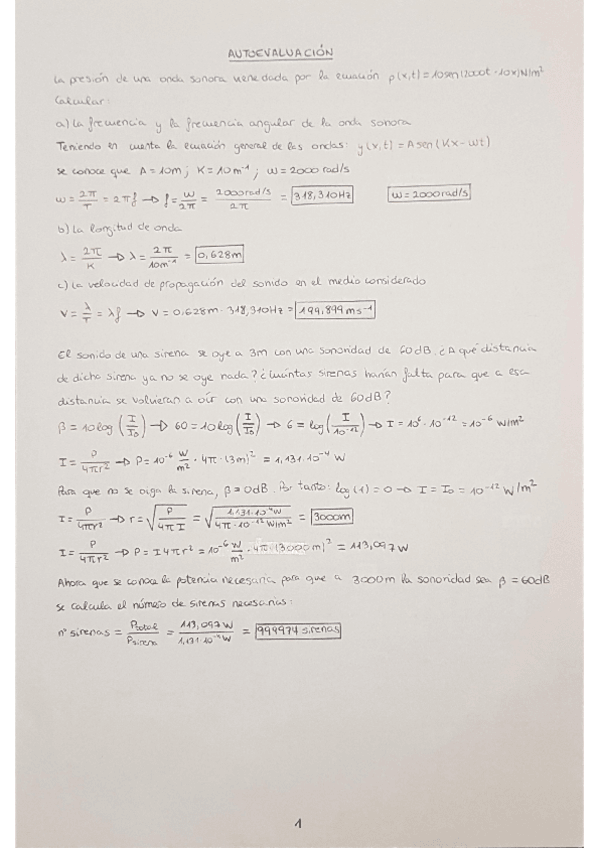 AUTOEVALUACIÓN
La presión de una onda sonora viene dada por la ecuación p(x,t)=10sen(2000t-10x)N/m²
Calcular:
a) La frecuencia y la frecuencia angular de la onda sonora
Teniendo en cuenta la ecuación general de las ondas: y(x,t)=Asen(Kx-wt)
se conoce que A=10m; K=10m⁻¹; w=2000rad/s
w = 2π/T = 2πf → f = w/2π = 2000rad/s / 2π = 318,310Hz w=2000rad/s
b) La longitud de onda
λ = 2π/K → λ = 2π/10m⁻¹ = 0,628m
c) La velocidad de propagación del sonido en el medio considerado
V = λ/T = λf → V = 0,628m · 318,310Hz = 199,899ms⁻¹
El sonido de una sirena se oye a 3m con una sonoridad de 60dB. ¿A qué distancia
de dicha sirena ya no se oye nada? ¿Cuántas sirenas harían falta para que a esa
distancia se volvieran a oír con una sonoridad de 60dB?
β = 10log(I/I₀) → 60 = 10log(I/I₀) → 6 = log(I/10⁻¹²) → I = 10⁶ · 10⁻¹² = 10⁻⁶ W/m²
I = P/4πr² → P = 10⁻⁶ W/m² · 4π · (3m)² = 1,131·10⁻⁴ W
Para que no se oiga la sirena, β=0dB. Por tanto: log(1) = 0 → I = I₀ = 10⁻¹² W/m²
I = P/4πr² → r = √(P/4πI) = √(1,131·10⁻⁴W / 4π·10⁻¹²W/m²) = 3000m
I = P/4πr² → P = I4πr² = 10⁻⁶ W/m² · 4π · (3000m)² = 113,097W
Ahora que se conoce la potencia necesaria para que a 3000m la sonoridad sea β=60dB
se calcula el número de sirenas necesarias:
nº sirenas = Ptotal/Psirena = 113,097W / 1,131·10⁻⁴W = 999974 sirenas
1